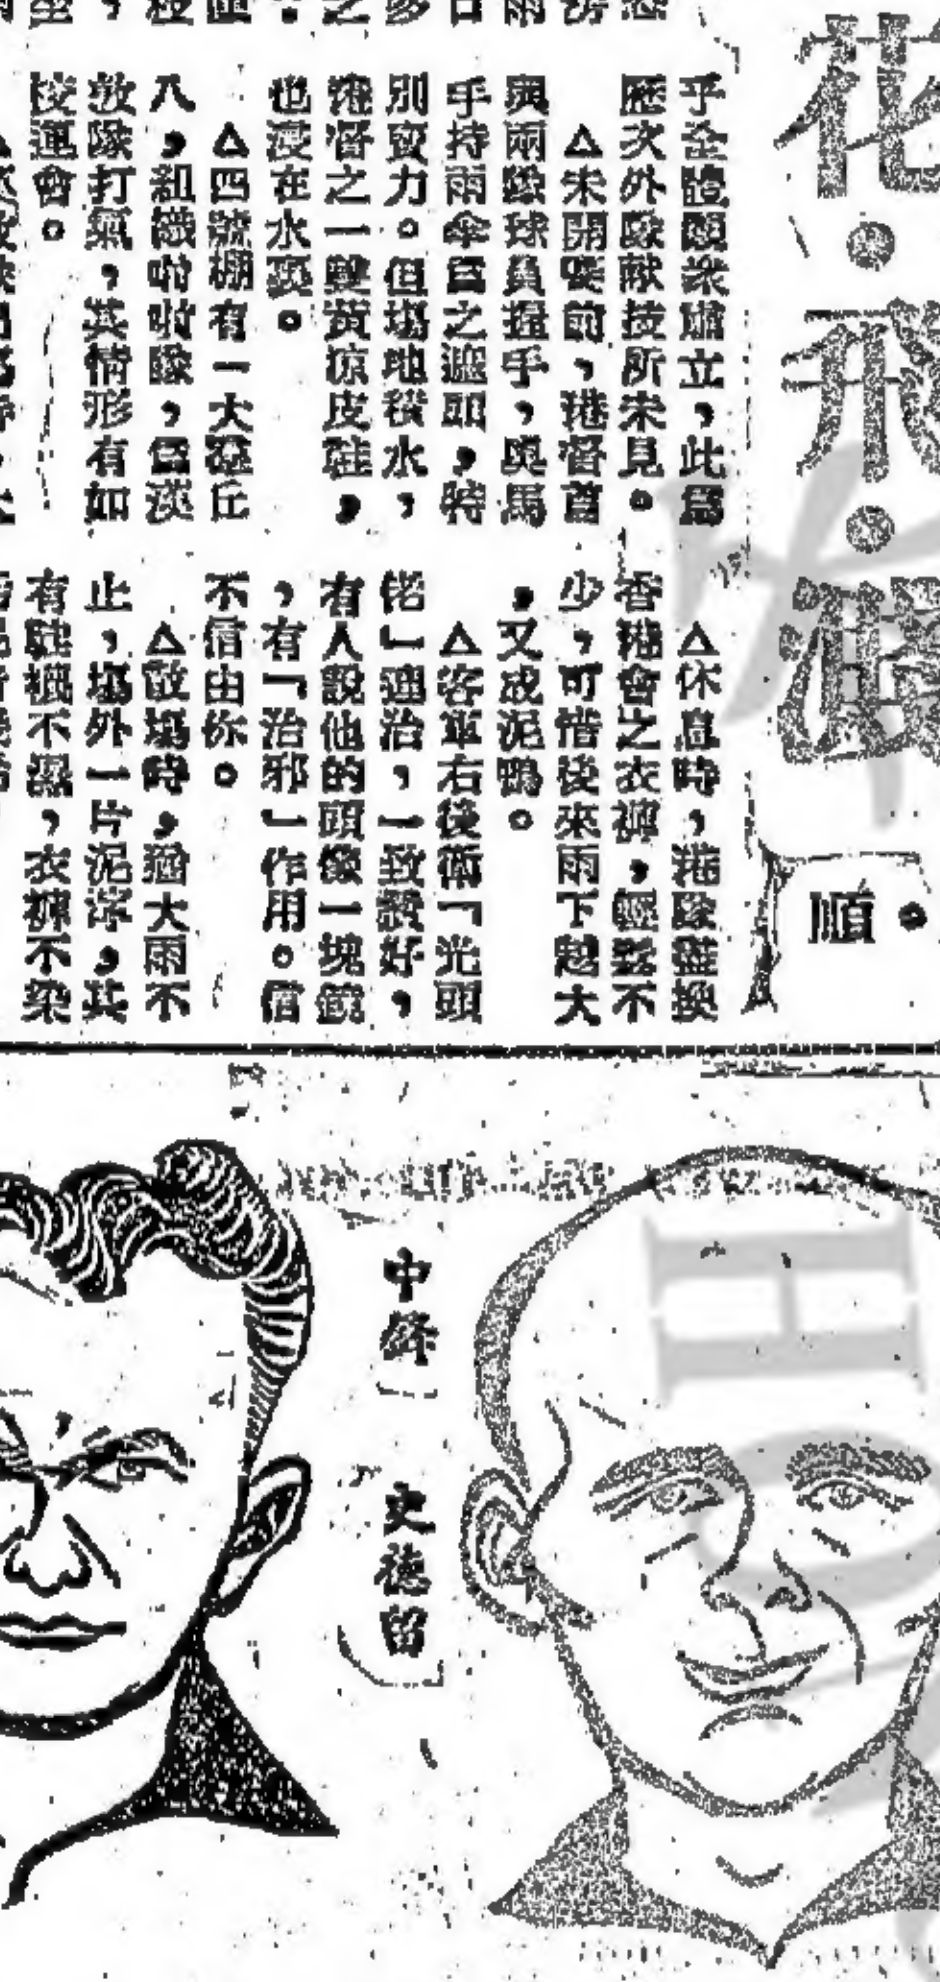 花・飛・
順。
乎全體觀衆肅立,此爲
歷次外隊献技所未見。
△未開賽前,港督首
與兩隊球員握手,與馬
手持雨傘爲之遮雨,特
別賣力。但塲地積水,
港督之一雙黃凉皮鞋,
也浸在水裏。
△四號棚有一大丘
八,組織啦啦隊,爲漢
敦隊打氣,其情形有如
校運會。
△休息時,港隊盡換
香港會之衣褲,輕鬆不
少,可惜後來雨下越大
,又成泥鴨。
△客軍右後衛「光頭
佬」連治,一致讚好,
有人說他的頭像一塊鏡
,有「治邪」作用。信
不信由你。
△散塲時,適大雨不
止,塲外一片泥濘,其
有鞋襪不濕,衣褲不染
中鋒
史德留
HO